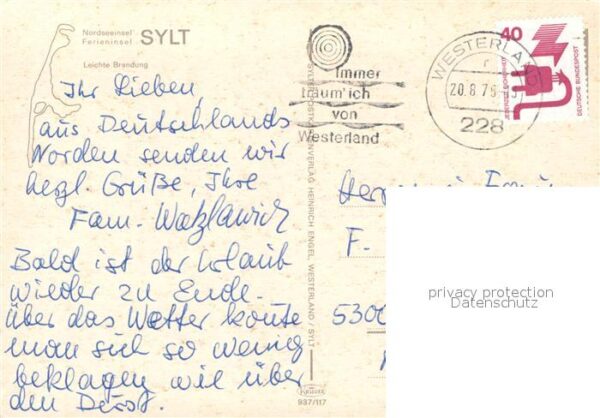 Nordseeinsel
Ferieninsel SYLT
Leichte Brandung
Ihr Lieben,
aus Deutschlands
Norden senden wir
herzl. Grüße, Ihre
Fam.
Bald ist der Urlaub
wieder zu Ende.
über das Wetter konte
man sich so wenig
beklagen wie über
den Durst.
SYLT-POSTKARTENVERLAG HEINRICH ENGEL, WESTERLAND / SYLT
Krüger
937/117
Immer
träum' ich
von
Westerland
WESTERLAND
r
20.8.76
228
40
JEDERZEIT SICHERHEIT
DEUTSCHE BUNDESPOST
F.
5300
privacy protection
Datenschutz